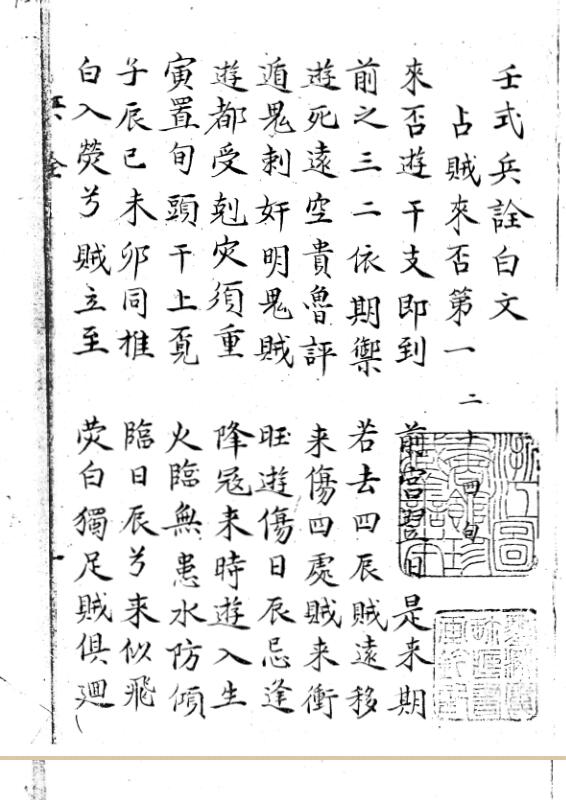 壬式兵詮白文
占賊來否第一 二十四句
來否遊干支即到 前宮翌日是来期
前之三二依期禦 若去四辰賊遠移
遊死遠空貴魯評 来傷四處賊来衝
遁鬼刺奸明鬼賊 旺遊傷日辰忌逢
遊都受剋灾須重 降冦来時遊入生
寅置旬頭干上覔 火臨無患水防傾
子辰巳未卯同推 臨日辰兮来似飛
白入熒兮賊立至 熒白獨足賊俱廻
浙江圖
書館珍